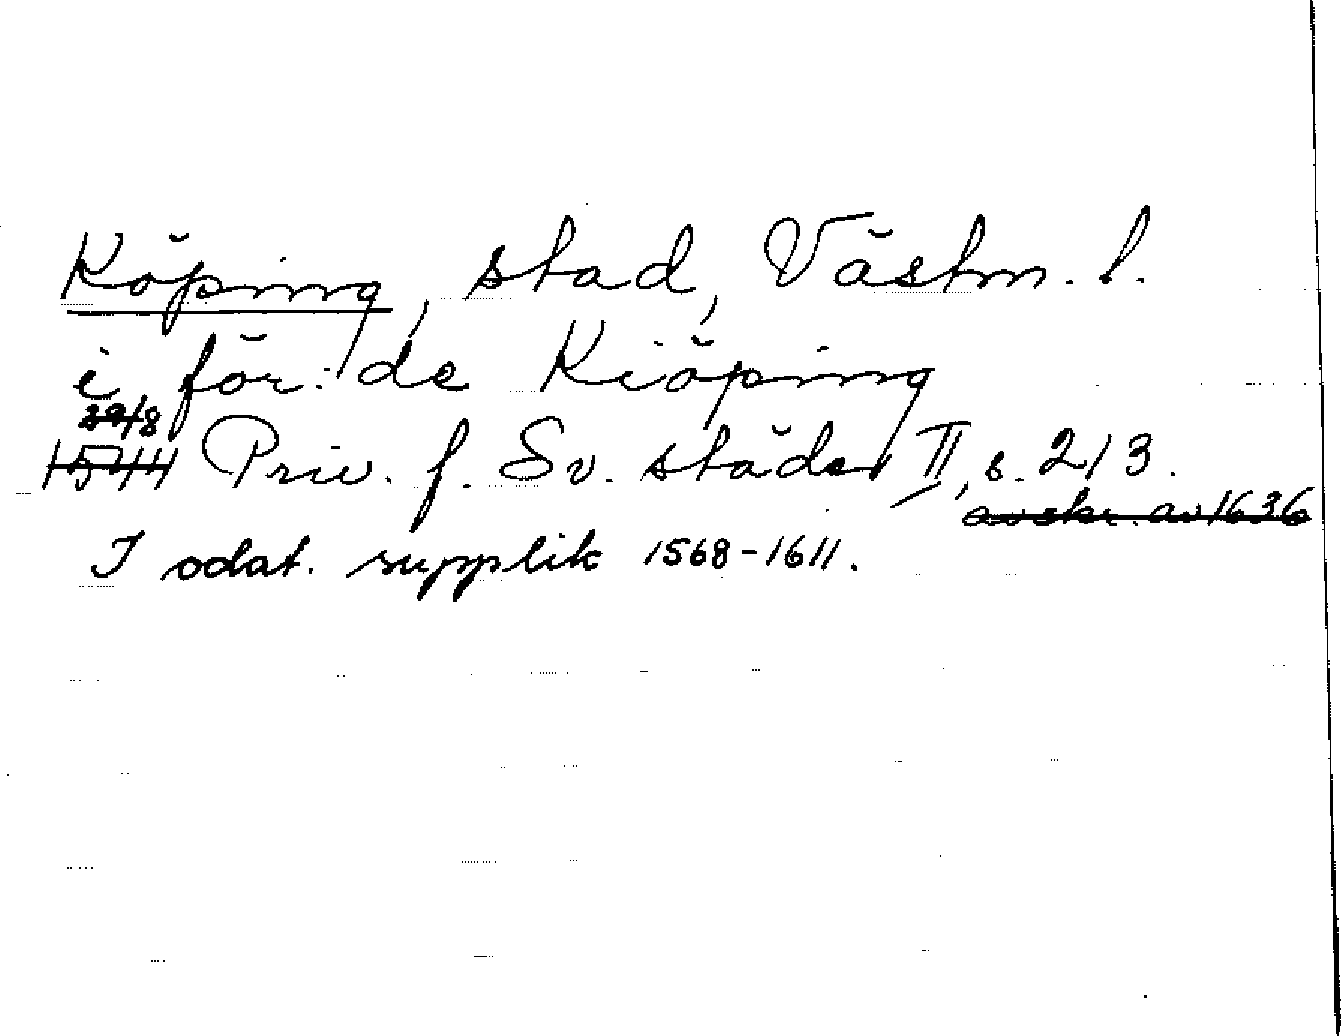 Köping, stad, Västm. l.
i för: de Kiöping
29/8
1544 Priv. f. Sv. städer II, s. 213.
avskr. av 1636
I odat. supplik 1568-1611.